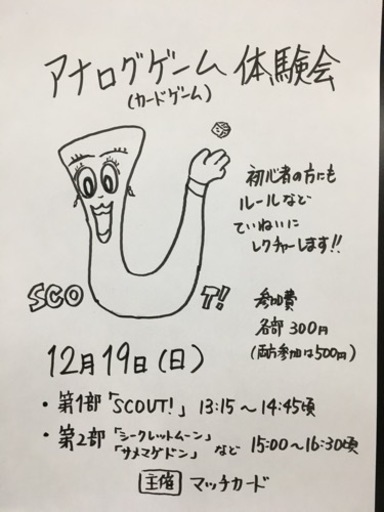 アナログゲーム 体験会
(カードゲーム)
初心者の方にも
ルールなど
ていねいに
レクチャーします!!
SCOUT!
参加費
各部 300円
(両方参加は500円)
12月19日(日)
・第1部「SCOUT!」 13:15〜14:45頃
・第2部「シークレットムーン」
「サメマゲドン」 など 15:00〜16:30頃
主催 マッチカード